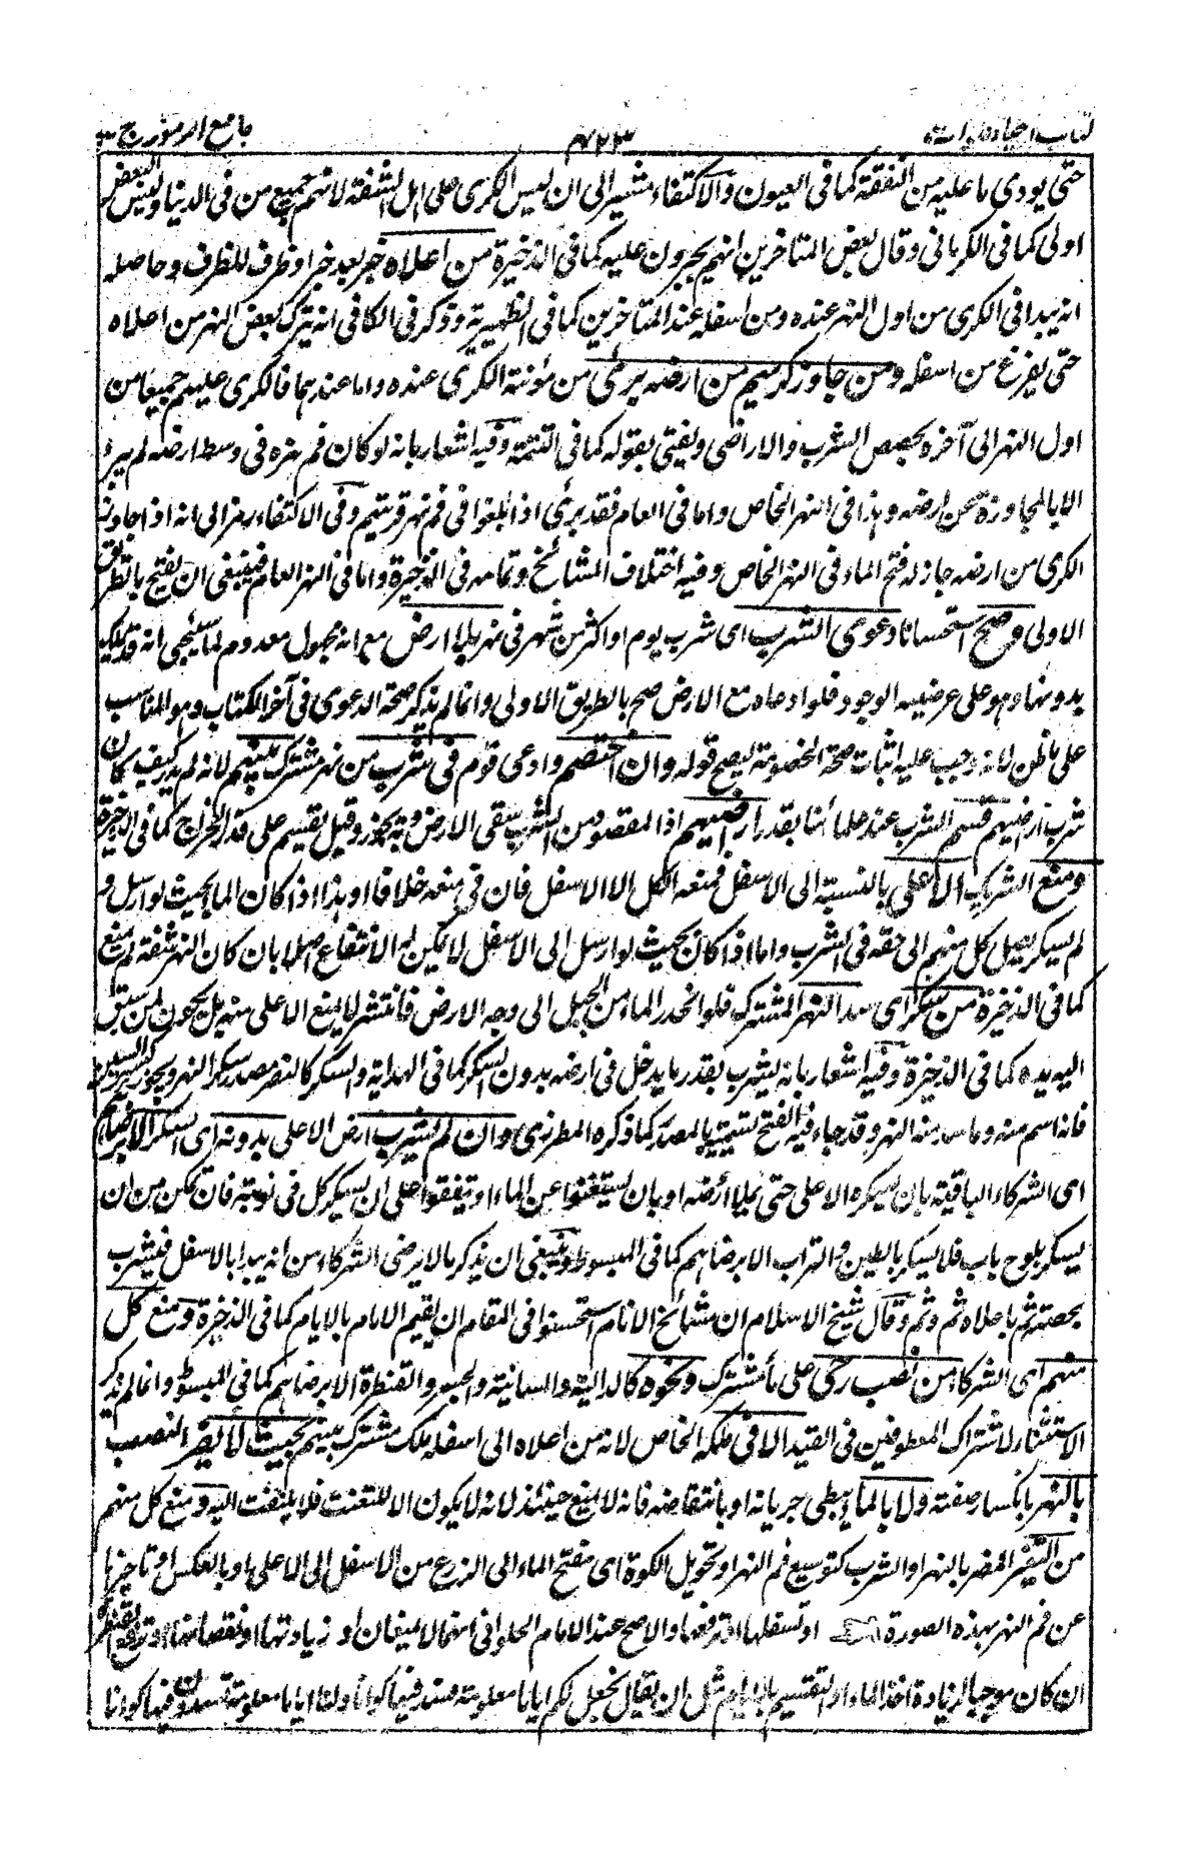 كتاب احياء الموات ٦٢٣ جامع الرموز ج ٣
حتى يودى ما عليه من النفقة كما فى العيون والاكتفاء مشير الى ان ليس الكرى على اهل الشفة لانهم جميع من فى الدنيا وليس البعض
اولى كما فى الكرمانى وقال بعض المتاخرين انهم يجبرون عليه كما فى الذخيرة من اعلاه خبر بعد خبر او ظرف للظرف وحاصله
انه يبدا فى الكرى من اول النهر عنده ومن اسفله عند المتاخرين كما فى الظهيرية وذكر فى الكافى انه يترك بعض النهر من اعلاه
حتى يفرغ من اسفله ومن جاوز كريهم من ارضه برئ من مؤنة الكرى عنده واما عندهما فالكرى عليهم جميعا من
اول النهر الى آخره بحصص الشرب والاراضى ويفتى بقوله كما فى التتمة وفيه اشعار بانه لو كان فم نهره فى وسط ارضه لم يبرء
الا بالمجاوزة عن ارضه وهذا فى النهر الخاص واما فى العام فقد برئ اذا بلغوا فى فم نهر قريتهم وفى الاكتفاء رمز الى انه اذا جاوزت
الكرى من ارضه جاز له فتح الماء فى النهر الخاص وفيه اختلاف المشائخ وتمامه فى الذخيرة واما فى النهر العام فينبغى ان يفتح بالطريق
الاولى وصح استحسانا دعوى الشرب اى شرب يوم او اكثر من شهر فى نهر بلا ارض مع انه مجهول معدوم لما سيجى انه قد يملك
بدونها وهو على عرضيه الوجود فلو ادعاه مع الارض صح بالطريق الاولى وانما لم يذكر صحة الدعوى فى آخر الكتاب وهو المناسب
على ما ظن لانه وجب عليه اثبات صحة الخصومة ليصح قوله وان اختصم وادعى قوم فى شرب من نهر مشترك بينهم لانه لم يدر كيف كان
شرب اراضيهم قسم الشرب عند علمائنا بقدر اراضيهم اذ المقصود من الشرب سقى الارض وقيل يقسم على قدر الخراج كما فى الذخيرة
ومنع الشريك الاعلى بالنسبة الى الاسفل فمنعه الكل الا الاسفل فان فى منعه خلافا وهذا اذا كان الماء بحيث لو ارسل و
لم يسكر يصل كل منهم الى حقه فى الشرب واما اذا كان بحيث لو ارسل الى الاسفل لا يمكن له الانتفاع اصلا بان كان النهر شفة لم يمنع
كما فى الذخيرة من سكر اى سد النهر المشترك فلو انحدر الماء من الجبل الى وجه الارض فانتشر لا يمنع الاعلى منه بل يكون لمن سبق
اليه يده كما فى الذخيرة وفيه اشعار بانه يشرب بقدر ما يدخل فى ارضه بدون السكر كما فى الهداية والسكر كالنصر مصدر سكر النهر ويجوز كسر السين
فانه اسم منه وما سد منه النهر وقد جاء فيه الفتح تسمية بالمصدر كما ذكره المطرزى وان لم يشرب ارض الاعلى بدونه اى السكر الا برضاهم
اى الشركاء الباقية بان يسكره الاعلى حتى يملأ ارضه او بان يستغنوا عن الماء او يتفقوا على ان يسكر كل فى نوبته فان تمكن من ان
يسكر بلوح باب فلا يسكر بالطين والتراب الا برضاهم كما فى المبسوط وينبغى ان يذكر ما لا يرضى الشركاء من انه يبدا بالاسفل فيشرب
بحصته ثم باعلاه ثم وثم وقال شيخ الاسلام ان مشائخ الانام استحسنوا فى المقام ان يقيم الامام بالايام كما فى الذخيرة ومنع كل
منهم اى الشركاء من نصب رحى على ماء مشترك ونحوه كالدالية والسانية والجسر والقنطرة الا برضاهم كما فى المبسوط وانما لم يذكر
الاستثناء لاشتراك المعطوفين فى القيد الا فى ملكه الخاص لانه من اعلاه الى اسفله ملك مشترك بينهم بحيث لا يضر النصب
بالنهر بانكسار ضفته ولا بالماء ببطى جريانه او بانتقاضه فانه لا يمنع حينئذ لانه لا يكون الا للتعنت فلا يلتفت اليه ومنع كل منهم
من التغير المضر بالنهر او الشرب كتوسيع فم النهر وتحويل الكوة اى مفتح الماء الى الزرع من الاسفل الى الاعلى او بالعكس او تاخيرها
عن فم النهر بهذه الصورة او تسفلها او ترفعها والاصح عند الامام الحلوانى انهما لا يمنعان او زيادتها او نقصانها او
ان كان موجبا لزيادة اخذ الماء او التقسيم بالايام مثل ان يقال نجعل لكم اياما معلومة نسد فيها كوانا ولنا اياما معلومة تسدون فيها كوانا